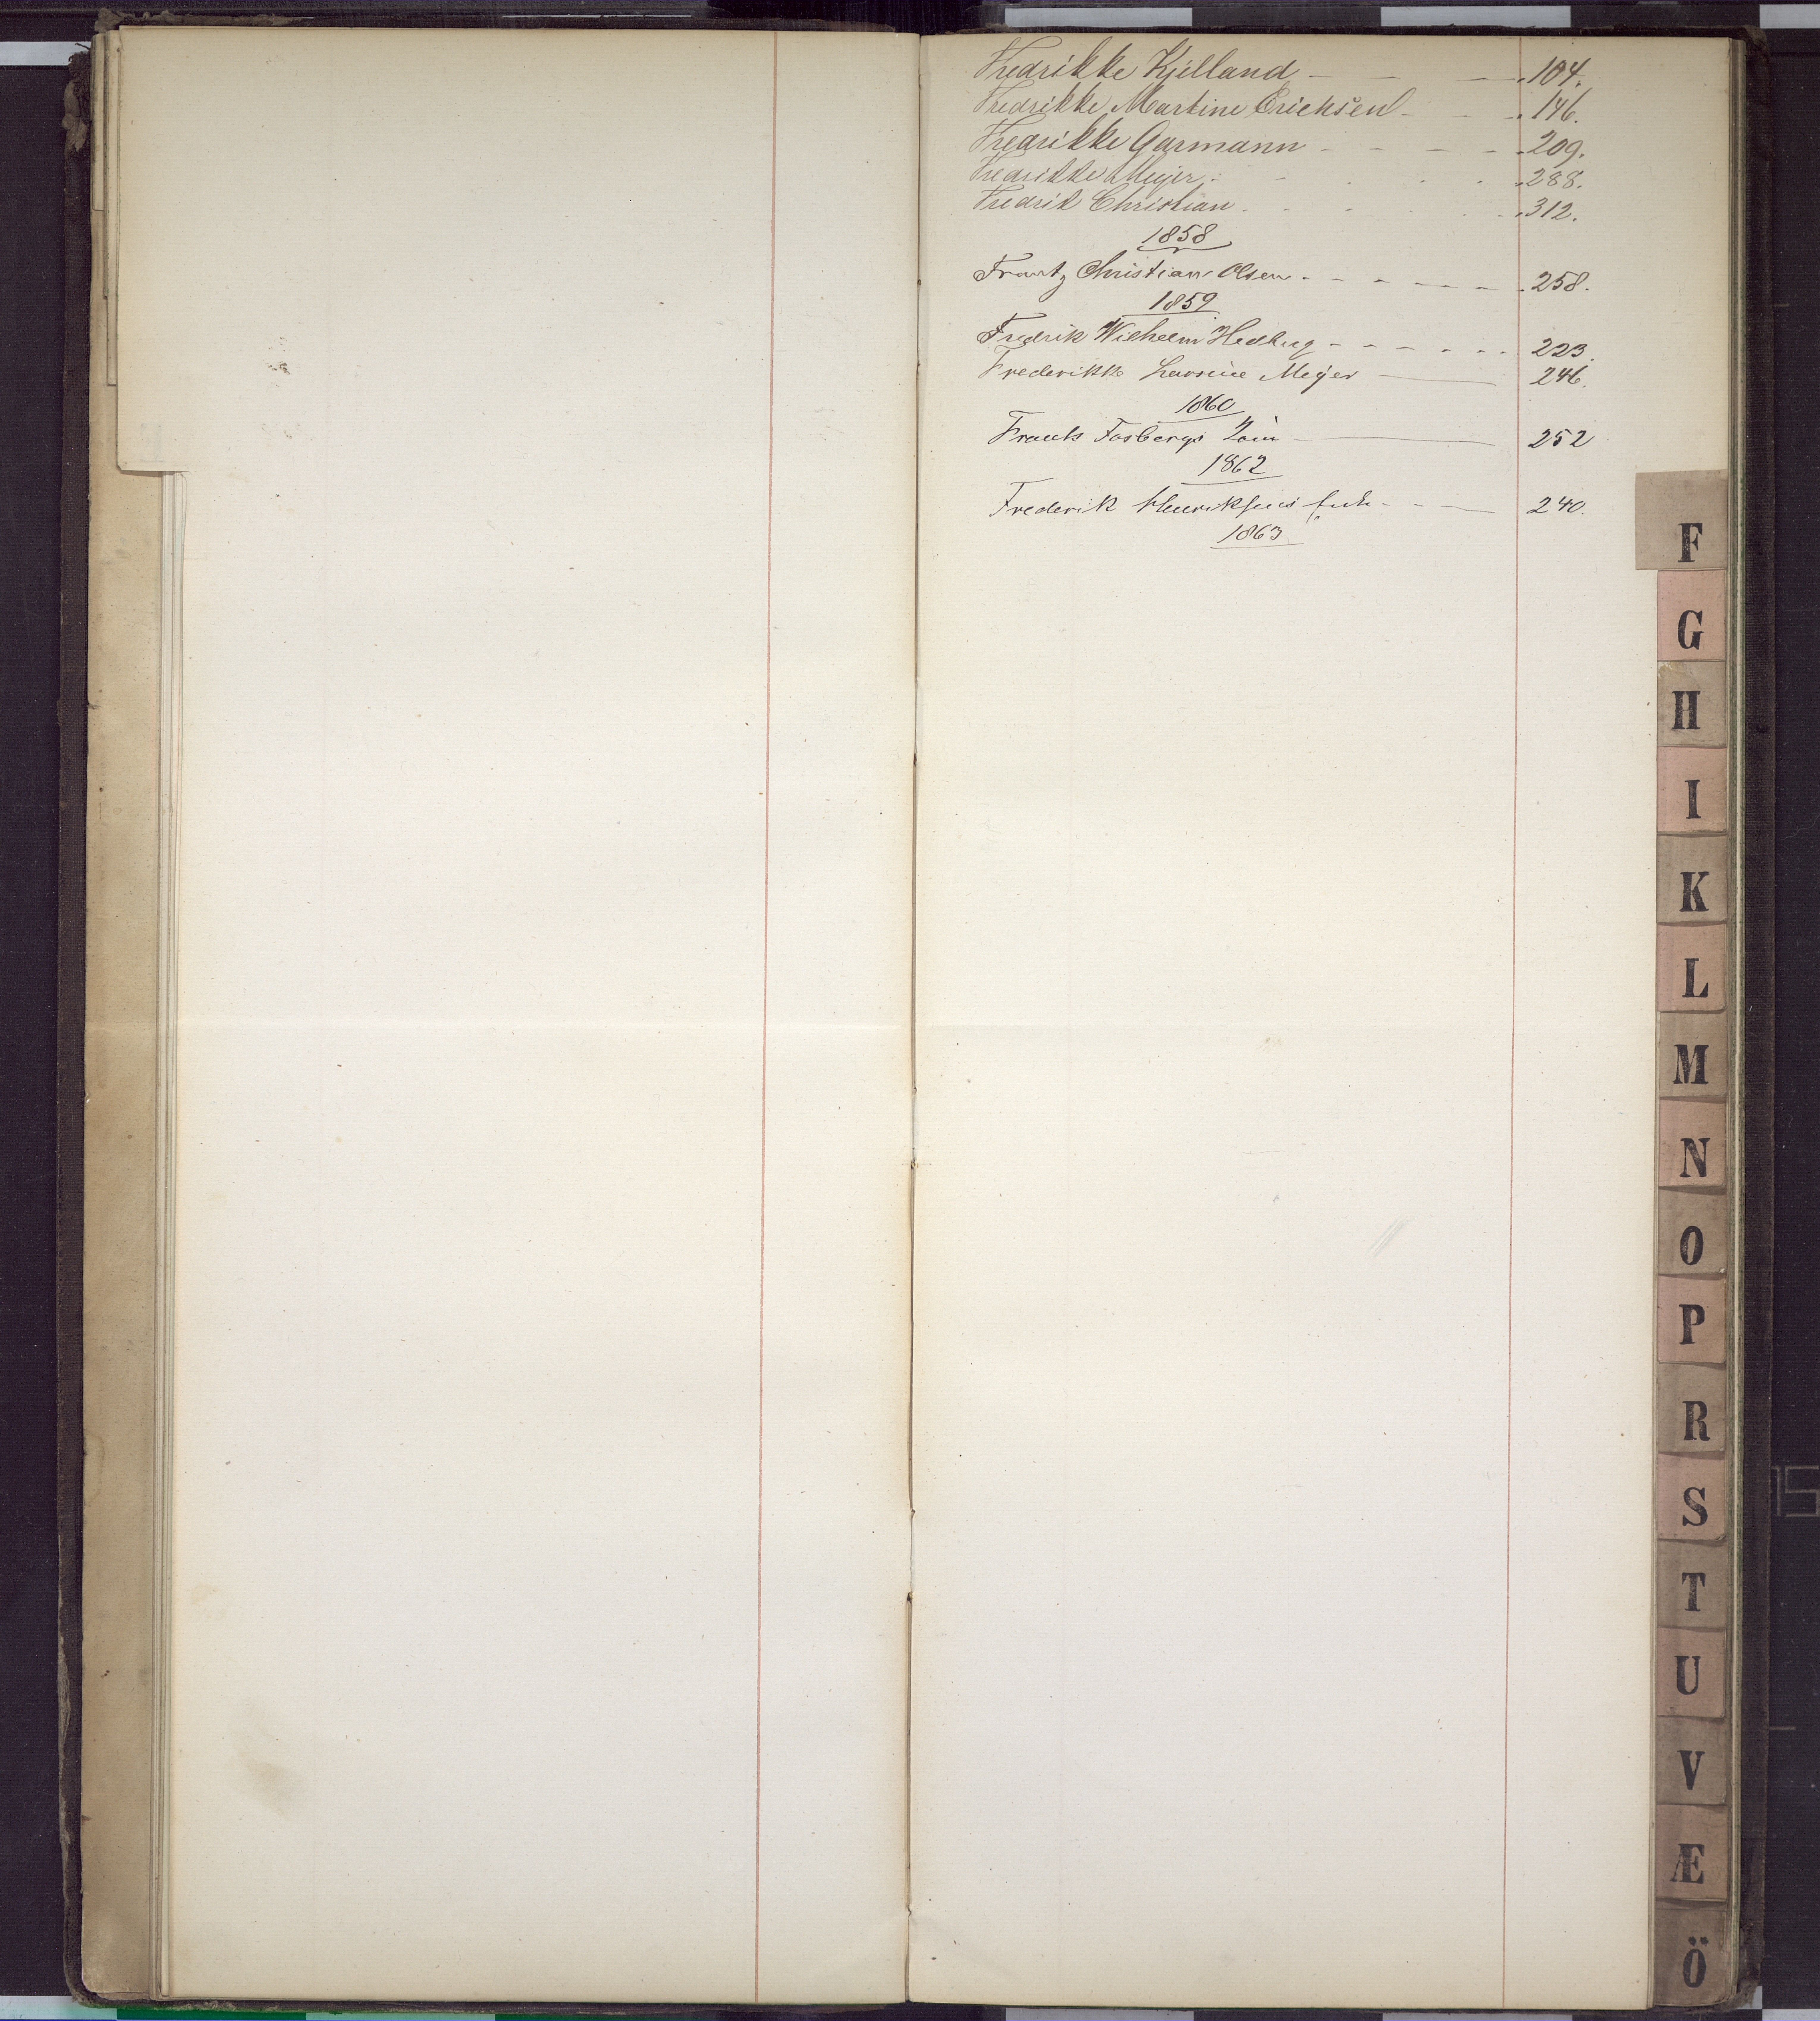 Fredrikke Kjelland - - - 104.
Fredrikke Martine Erichsen - - - 146.
Fredrikke Garmann - - - - 209.
Fredrikke Meyer - - - 288.
Fredrik Christian - - - 312.
1858
Frantz Christian Olsen - - - - - - 258.
1859
Fredrik Wilhelm Hedberg - - - - - - 223.
Frederikke Larsine Meyer — 246.
1860
Franks Fosbergs — 252
1862
Frederik Henriksens - - — 240.
1863
F
G
H
I
K
L
M
N
O
P
R
S
T
U
V
Æ
Ö